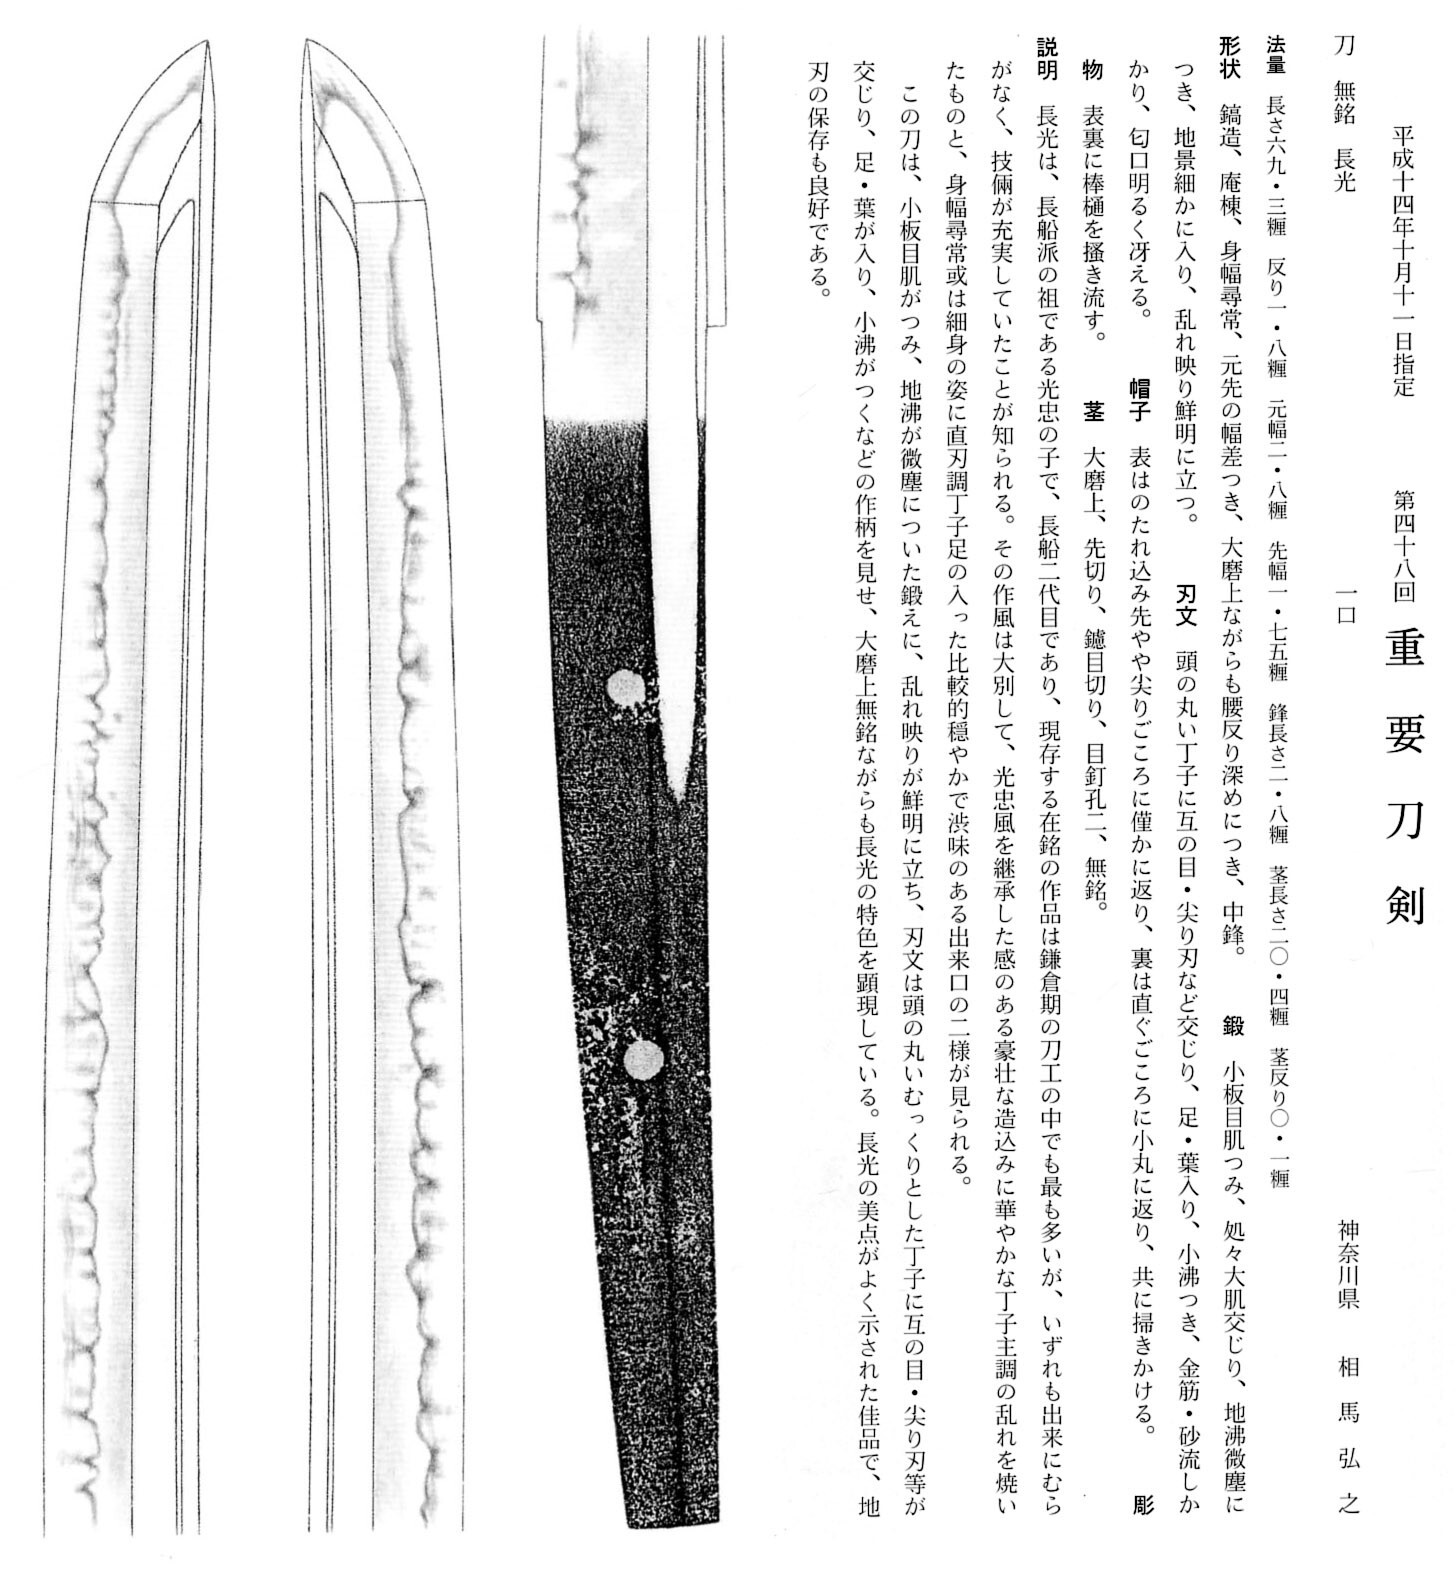 平成十四年十月十一日指定　第四十八回　重要刀剣
刀　無銘　長光　一口　神奈川県　相馬弘之
法量　長さ六九・三糎　反り一・八糎　元幅二・八糎　先幅一・七五糎　鋒長さ二・八糎　茎長さ二〇・四糎　茎反り〇・一糎
形状　鎬造、庵棟、身幅尋常、元先の幅差つき、大磨上ながらも腰反り深めにつき、中鋒。　鍛　小板目肌つみ、処々大肌交じり、地沸微塵に
つき、地景細かに入り、乱れ映り鮮明に立つ。　刃文　頭の丸い丁子に互の目・尖り刃など交じり、足・葉入り、小沸つき、金筋・砂流しか
かり、匂口明るく冴える。　帽子　表はのたれ込み先やや尖りごころに僅かに返り、裏は直ぐごころに小丸に返り、共に掃きかける。　彫
物　表裏に棒樋を搔き流す。　茎　大磨上、先切り、鑢目切り、目釘孔二、無銘。
説明　長光は、長船派の祖である光忠の子で、長船二代目であり、現存する在銘の作品は鎌倉期の刀工の中でも最も多いが、いずれも出来にむら
がなく、技倆が充実していたことが知られる。その作風は大別して、光忠風を継承した感のある豪壮な造込みに華やかな丁子主調の乱れを焼い
たものと、身幅尋常或は細身の姿に直刃調丁子足の入った比較的穏やかで渋味のある出来口の二様が見られる。
この刀は、小板目肌がつみ、地沸が微塵についた鍛えに、乱れ映りが鮮明に立ち、刃文は頭の丸いむっくりとした丁子に互の目・尖り刃等が
交じり、足・葉が入り、小沸がつくなどの作柄を見せ、大磨上無銘ながらも長光の特色を顕現している。長光の美点がよく示された佳品で、地
刃の保存も良好である。